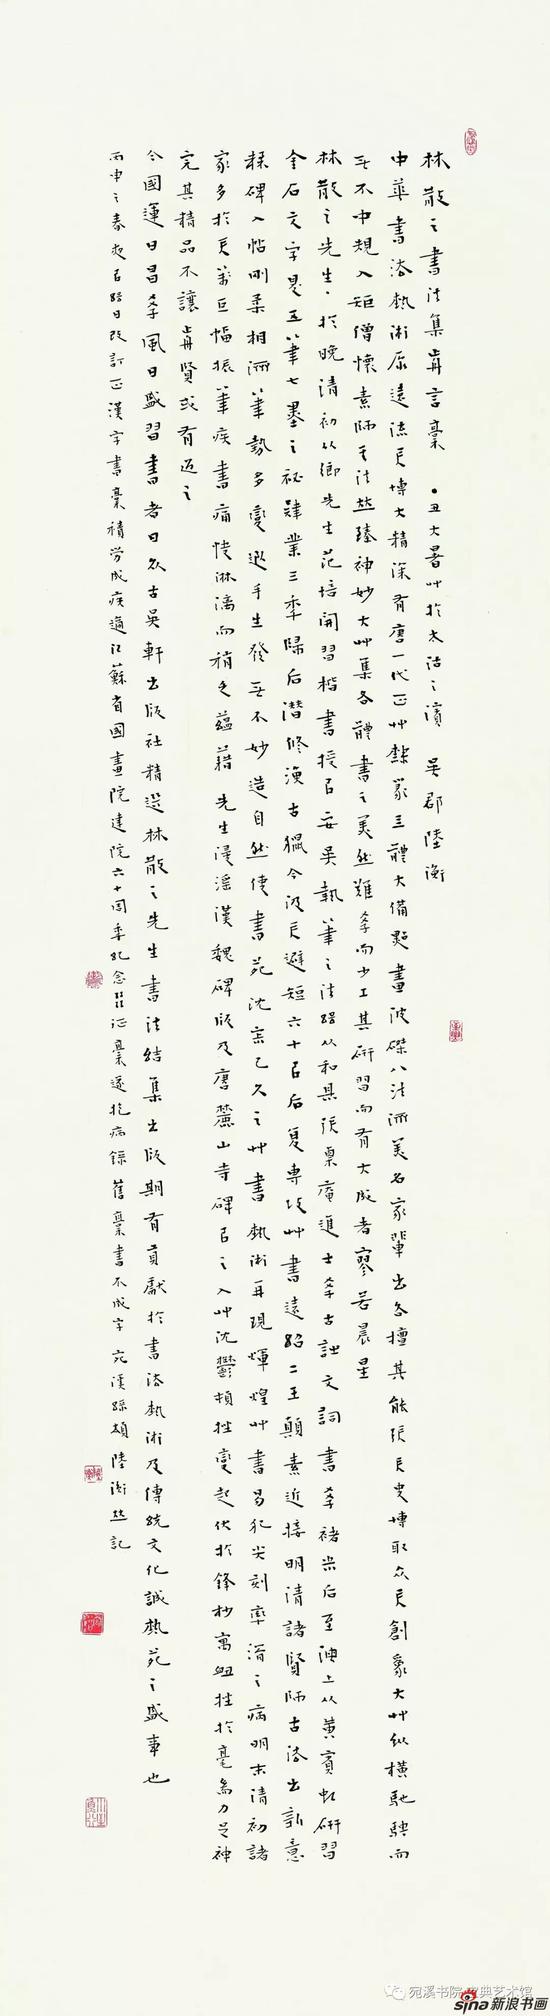 林散之書法集前言稾 丑大暑艸於太沽之濱 吳郡陸衡
中華書法藝術源遠流長博大精深有唐一代正艸隸篆三體大備點畫波磔八法兩美名家輩出各擅其能張長史博取众長創象大艸纵横馳騁而
无不中規入矩僧懷素師其法點臻神妙大艸集各體書之美然難學而少工其研習而有大成者寥若晨星
林散之先生於晚清初从鄉先生范培開習楷書授㠯安吳執筆之法踣从和县張栗庵進士學古詩文詞書學褚米后至滬上从黄賓虹研習
金石文字是五筆七墨之祕肄業三季歸后潜修漁古獵今汲長避短六十㠯后复專攻艸書遠紹二王顛素近接明清諸賢師古法出新意
糅碑入帖刚柔相濟筆勢多變遐手生發无不妙造自然使書苑沈寂已久之艸書藝術再現煇煌艸書易犯尖刻率滑之病明末清初諸
家多於長篇巨幅振筆疾書痛快淋漓而稍乏蘊藉先生浸滛漢魏碑版及唐麓山寺碑㠯之入艸沈鬱頓挫變起伏於鋒杪寓姐挫於毫為力足神
完其精品不讓前賢或有过之
今國運日昌學風日盛習書者日众古吳軒出版社精選林散之先生書法結集出版期有貢獻於書法藝術及傳統文化誠藝苑之盛事也
丙申之春改訂正漢字書稾積勞成疾適江蘇省國畫院建院六十周季紀念征稾遂抱病錄舊稾書不成字宛溪陸衡並記
宛溪书院 艺术馆
sina新浪书画